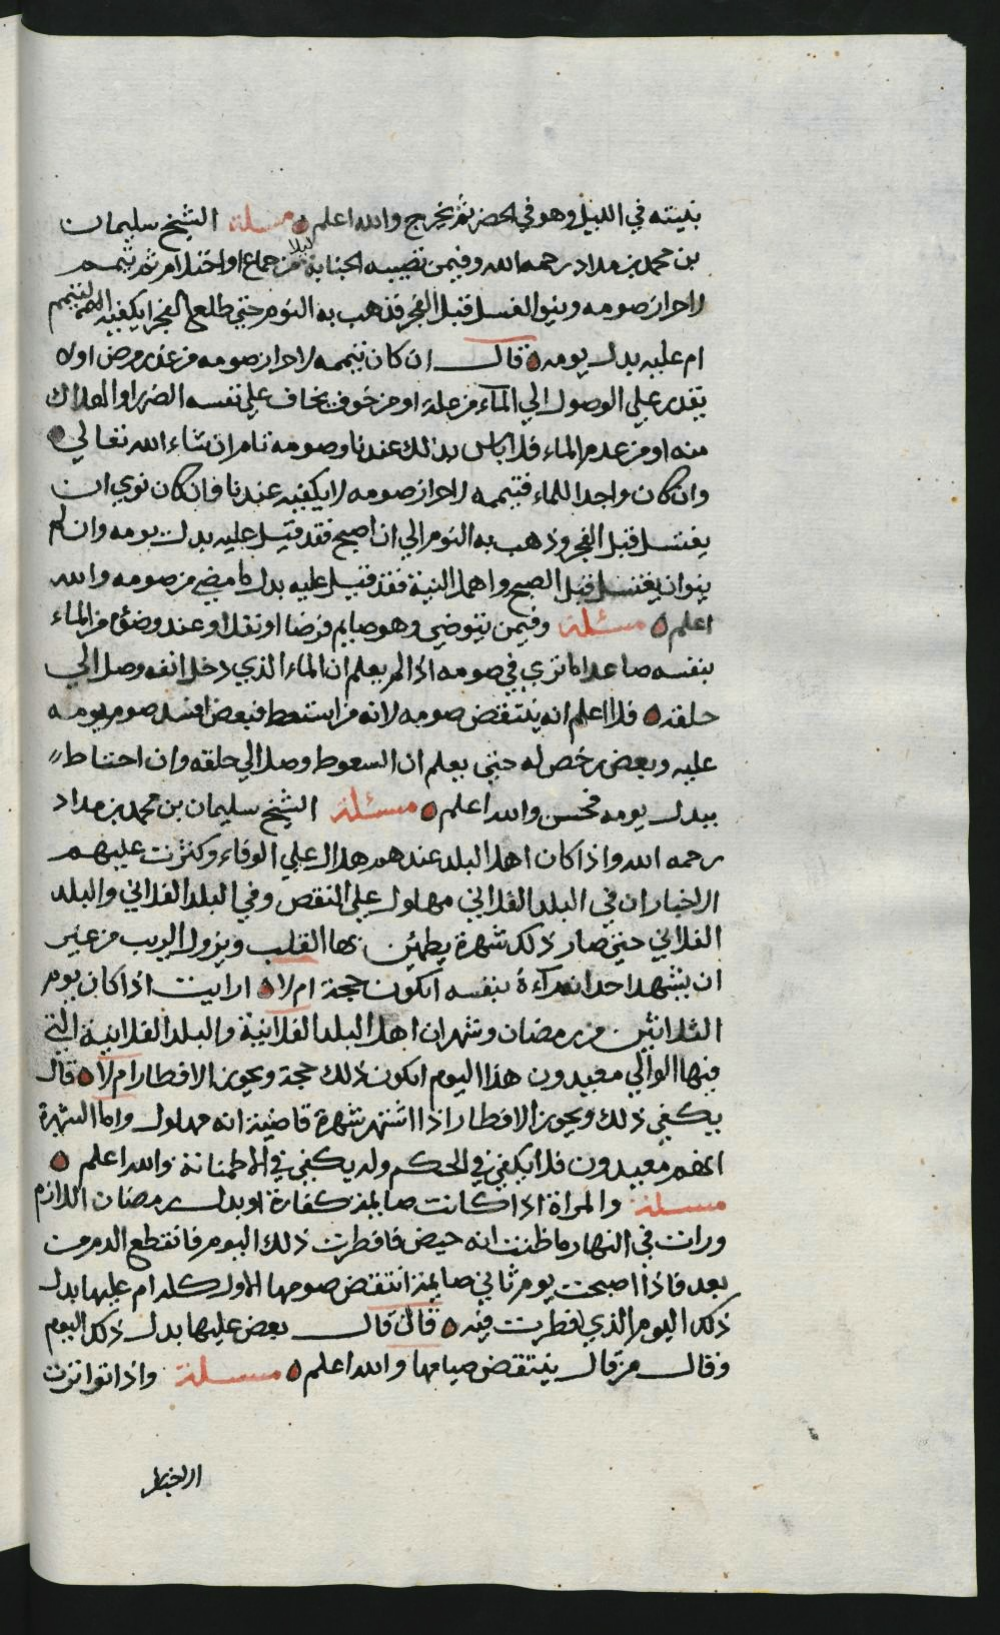 بنيته في الليل وهو في الحضر ثم يخرج والله اعلم مسلة الشيخ سليمان
بن محمد بن مداد رحمه الله وفيمن تصيبه الجنابة ليلا من جماع او احتلام ثم تيمم
لاحراز صومه وينو الغسل قبل الفجر فذهب به النوم حتى طلع الفجر ايكفيه التيمم
ام عليه بدل يومه قال ان كان تيممه لاحراز صومه من عذر مرض او لا
يقدر على الوصول الي الماء من علة او من خوف يخاف على نفسه الضرر او الهلاك
منه او من عدم الماء فلا باس بذلك عندنا وصومه تام ان شاء الله تعالي
وان كان واجدا للماء فتيممه لاحراز صومه لا يكفيه عندنا فان كان نوي ان
يغتسل قبل الفجر وذهب به النوم الي ان اصبح فقد قيل عليه بدل يومه وان لم
ينو ان يغتسل قبل الصبح واهمل النية فقد قيل عليه بدل ما مضى من صومه والله
اعلم مسئلة وفيمن يتوضى وهو صايم فرضا او نفلا وعند وضوئه من الماء
بنفسه صاعدا ما تري في صومه اذا لم يعلم ان الماء الذي دخل انفه وصل الي
حلقه فلا اعلم انه ينتقض صومه لانه من استعط فبعض افسد صوم يومه
عليه وبعض رخص له حتى يعلم ان السعوط وصل الي حلقه وان احتاط
ببدل يومه فحسن والله اعلم مسئلة الشيخ سليمان بن محمد بن مداد
رحمه الله واذا كان اهل البلد عندهم هلال علي الوفاء وكثرت عليهم
الاخبار ان في البلد الفلاني مهلول على النقص وفي البلد الفلاني والبلد
الفلاني حتى صار ذلك شهرة يطمئن بها القلب ويزول الريب من غير
ان يشهد احد انه رآءة بنفسه ايكون حجة ام لا ارايت اذا كان يوم
الثلاثين من رمضان وشهر ان اهل البلد الفلانية والبلد الفلانية التي
فيها الوالي معيدون هذا اليوم ايكون ذلك حجة ويجوز الافطار ام لا قال
يكفي ذلك ويجوز الافطار اذا اشتهر شهرة قاضية انه مهلول واما الشهرة
انهم معيدون فلا يكفي في الحكم وله يكفي في الاطمنانة والله اعلم
مسلة والمراة اذا كانت صايمة كفارة او بدل رمضان اللازم
ورات في النهار ما ظنت انه حيض فافطرت ذلك اليوم فانقطع الدم من
بعد فاذا اصبحت يوم ثاني صايمة انتقض صومها الاول كله ام عليها بدل
ذلك اليوم الذي افطرت فيه قال قال بعض عليها بدل ذلك اليوم
وقال من قال ينتقض صيامها والله اعلم مسلة واذا تواترت
الاخبار